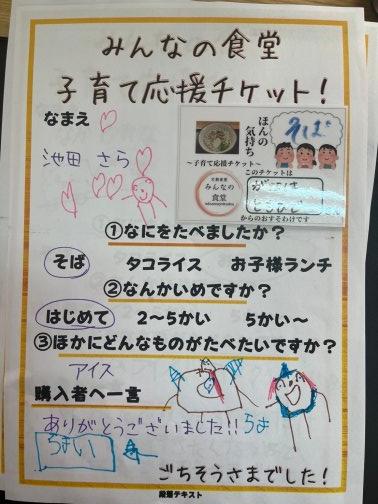 みんなの食堂
子育て応援チケット!
なまえ
池田 さら
ほんの
気持ち
そば
~子育て応援チケット~
みんなの
食堂
このチケットは
からのおすそわけです
①なにをたべましたか?
そば タコライス お子様ランチ
②なんかいめですか?
はじめて 2~5かい 5かい~
③ほかにどんなものがたべたいですか?
アイス
購入者へ一言
ありがとうございました!!
ごちそうさまでした!
段落テキスト